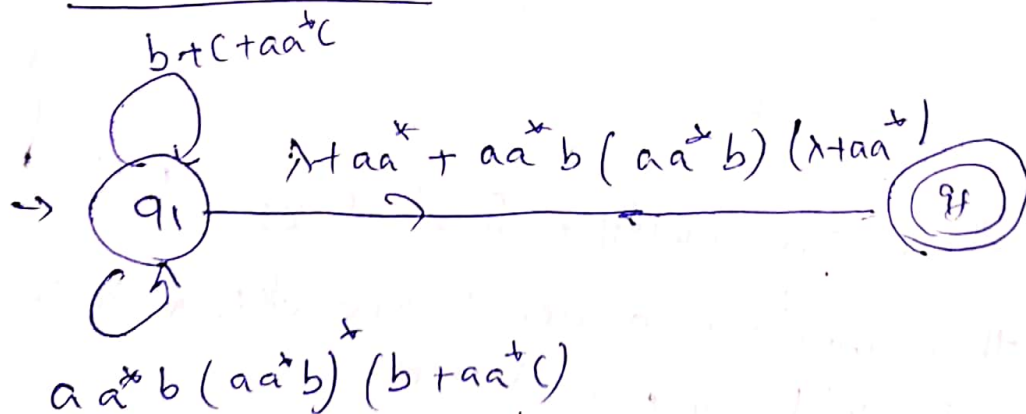 b+c+aa*c
λ+aa* + aa*b(aa*b)(λ+aa*)
→ q1 qf
aa*b(aa*b)*(b+aa*c)